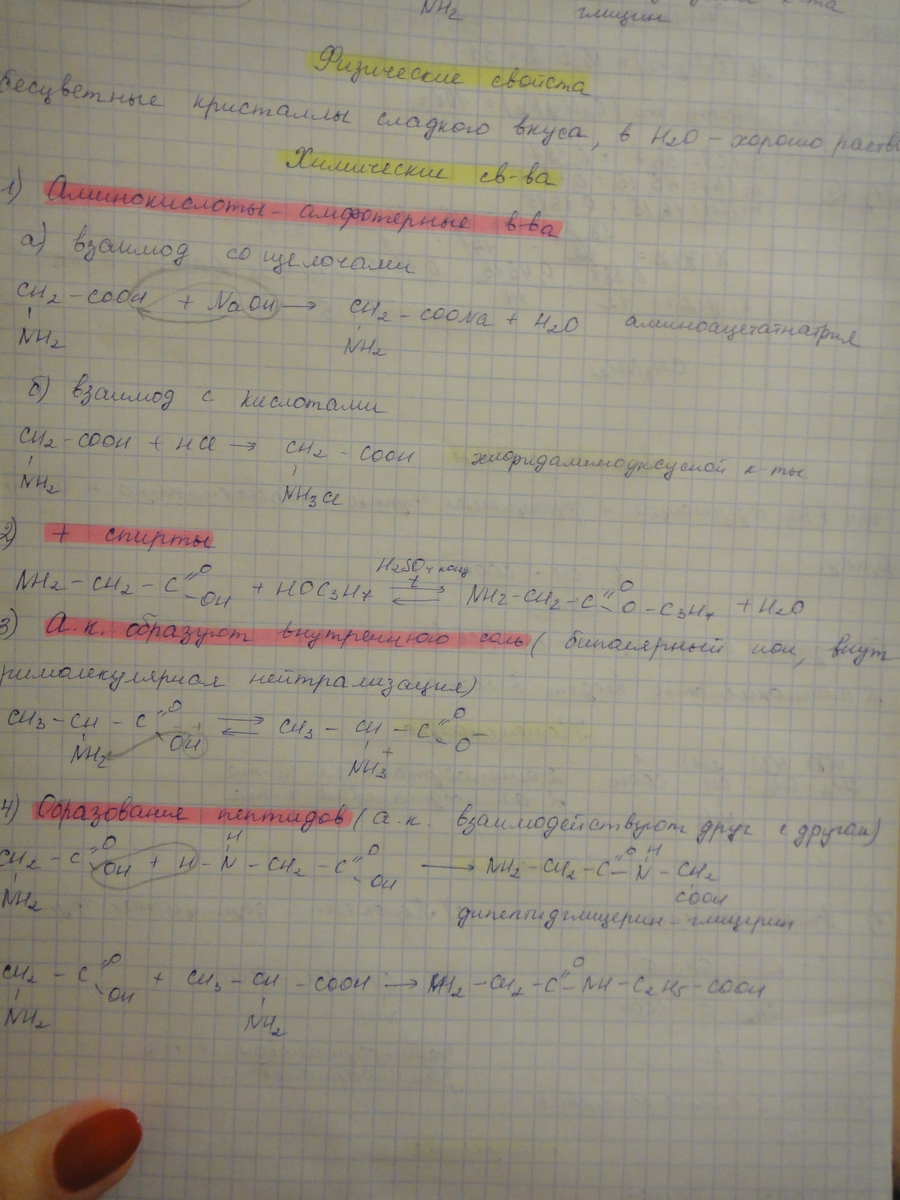 NH2 глицин
Физические свойста
бесцветные кристаллы сладкого вкуса, в H2O - хорошо раств
Химические св-ва
1) Аминокислоты - амфотерные в-ва
а) взаимод со щелочами
CH2 - COOH + NaOH → CH2 - COONa + H2O аминоацетатнатрия
NH2 NH2
б) взаимод с кислотами
CH2 - COOH + HCl → CH2 - COOH хлоридаминоуксусной к-ты
NH2 NH3Cl
2) + спирты
H2SO4 конц
NH2 - CH2 - C =O - OH + HOC3H7 ⇄ t NH2 - CH2 - C =O - O - C3H7 + H2O
3) А.к. образуют внутреннюю соль (биполярный ион, внут
римолекулярная нейтрализация)
CH3 - CH - C =O - OH ⇄ CH3 - CH - C =O - O-
NH2 NH3+
4) Образование пептидов (а.к. взаимодействуют друг с другом)
CH2 - C =O - OH + H - N - CH2 - C =O - OH → NH2 - CH2 - C =O - N - CH2
NH2 H H COOH
дипептидглицерин - глицерин
CH2 - C =O - OH + CH3 - CH - COOH → NH2 - CH2 - C =O - NH - C2H5 - COOH
NH2 NH2